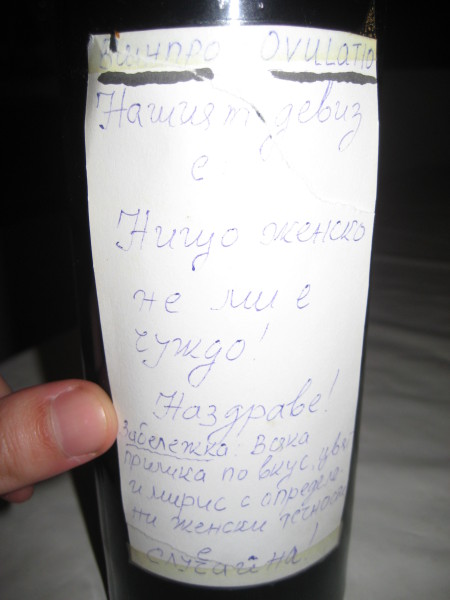 Винпро OVULATIO
Нашият девиз
е
Нищо женско
не ми е
чуждо!
Наздраве!
Забележка: Всяка
прилика по вкус, цвят
и мирис с определе-
ни женски течности
е
случайна!